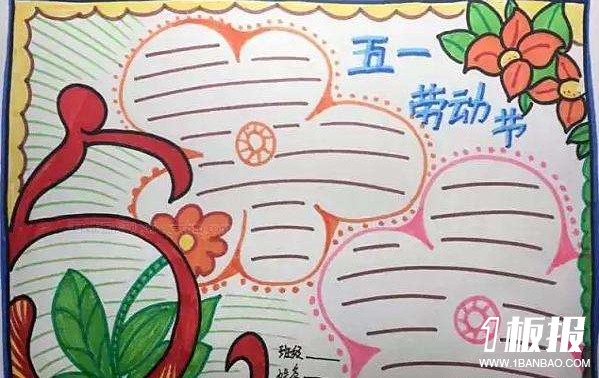 五一
劳动节
班级
姓名
1板报
WWW.1BANBAO.COM